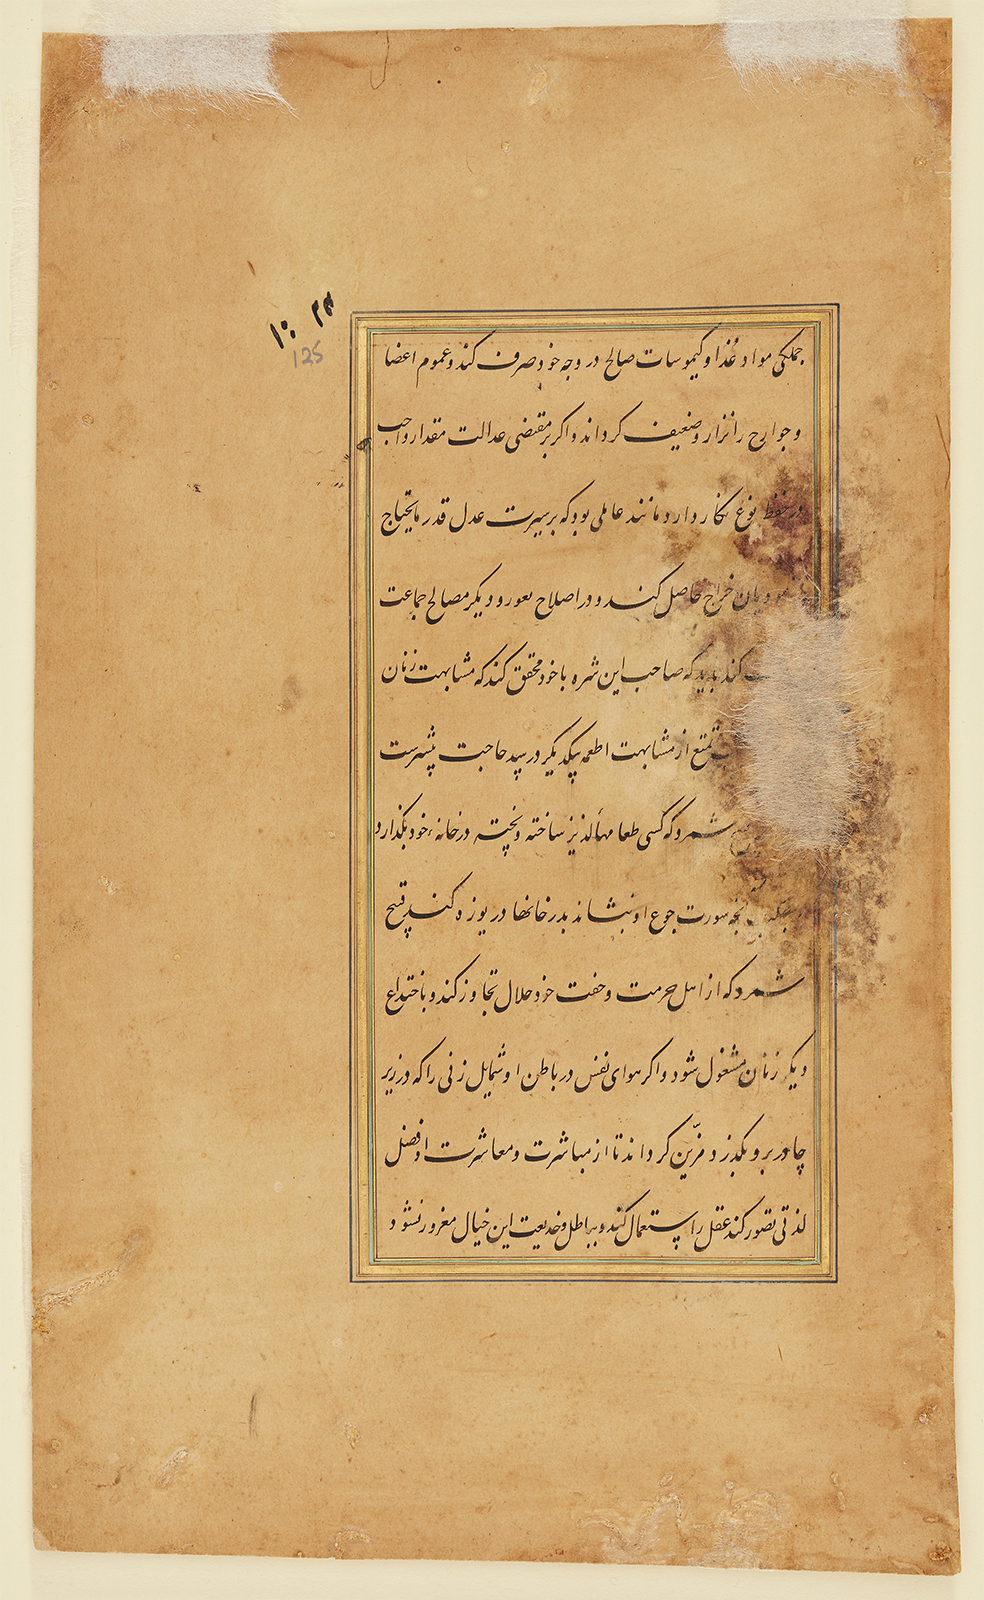 ۱۰: ۲۴
125
جملکی مواد غذا و کیموسات صالح در وجه خود صرف کند و عموم اعضا
و جوارح را نزار و ضعیف کرداند و اکر بر مقتضی عدالت مقدار واجب
در حفظ نوع بکار دارد مانند عاملی بود که بر سیرت عدل قدر مایحتاج
خراج حاصل کند و در اصلاح ثغور و دیکر مصالح جماعت
کند باید که صاحب این شره با خود محقق کند که مشابهت زنان
تمتع از مشابهت اطعمه بیکدیکر در سد حاجت بیشترست
شمرد که کسی طعامهاء لذیذ ساخته و پخته در خانهٔ خود بکذارد
صورت جوع او بنشاند بدر خانها دریوزه کند قبیح
شمرد که از اهل حرمت و جفت خود حلال تجاوز کند و باختداع
دیکر زنان مشغول شود و اکر هوای نفس در باطن او شمایل زنی را که در زیر
چادر برو بکذرد مزین کرداند تا از مباشرت و معاشرت او فضل
لذتی تصور کند عقل را استعمال کند و بباطل و خدیعت این خیال مغرور نشود